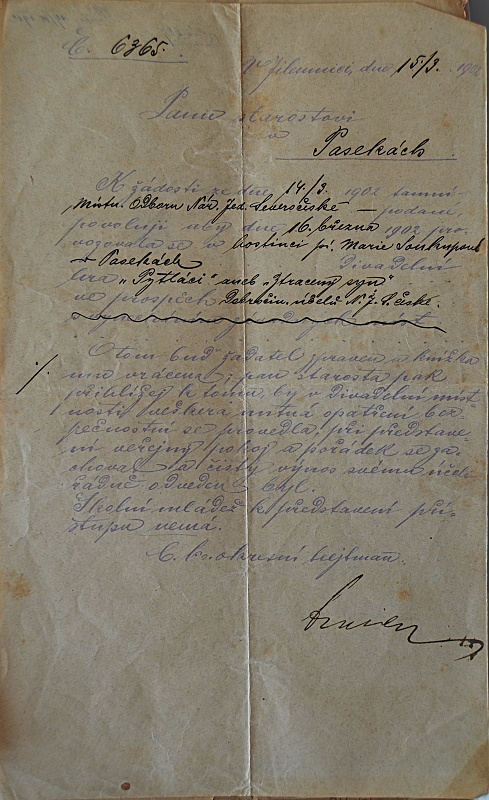 Č. 6365.
V Jilemnici, dne 15/3. 190
Panu starostovi
v
Pasekách.
K žádosti ze dne 14/3. 1902 tamní-
Místn. Odboru Nár. Jed. Severočeské — podané,
povoluji aby dne 16. března 1902 pro-
vozovala se v hostinci pí. Marie Soukupové
v Pasekách divadelní
hra „Pytláci" aneb „Ztracený syn"
ve prospěch Dobročin. účelů N. J. S. České.
O tom buď žadatel zpraven a knížka
mu vrácena; pan starosta pak
přihlížej k tomu, by v divadelní míst-
nosti veškerá nutná opatření bez-
pečnostní se provedla, při představe-
ní veřejný pokoj a pořádek se za-
choval a čistý výnos svému účeli
řádně odveden byl.
Školní mládež k představení pří-
stupu nemá.
C. kr. okresní hejtman.